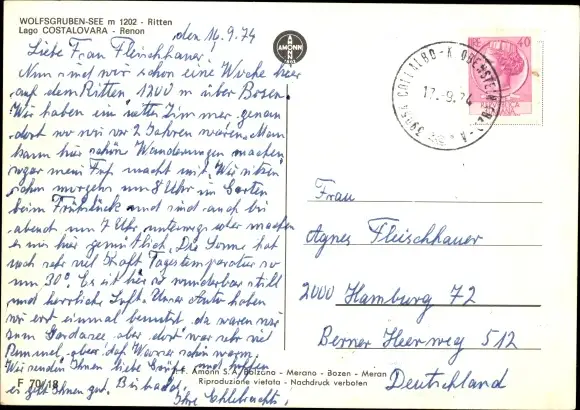 WOLFSGRUBEN-SEE m 1202 - Ritten
Lago COSTALOVARA - Renon
den 16.9.74
Liebe Frau Fleischhauer!
Nun sind wir schon eine Woche hier
auf dem Ritten 1200 m über Bozen.
Wir haben ein nettes Zimmer, genau
dort wo wir vor 2 Jahren waren. Man
kann hier schön Wanderungen machen
sogar mein Fuß macht mit. Wir sitzen
schon morgens um 8 Uhr im Garten
beim Frühstück und sind auch bis
abend um 7 Uhr unterwegs oder machen
es uns hier gemütlich. Die Sonne hat
noch sehr viel Kraft Tagestemperatur so
um 30°. Es ist hier so wunderbar still
und herrliche Luft. Unser Auto haben
wir erst einmal benutzt, da waren wir
zum Gardasee, aber dort war sehr viel
Rummel, aber das Wasser schön warm.
Wir senden Ihnen liebe Grüße und hoffen
es geht Ihnen gut. Bis bald.
Ihre
AMONN
1802
40
39054 COLLALBO-KLOBENSTEIN
17.-9.74
Frau
Agnes Fleischhauer
2000 Hamburg 72
Berner Heerweg 512
Deutschland
F 70/18
F. F. Amonn S.A. Bolzano - Merano - Bozen - Meran
Riproduzione vietata - Nachdruck verboten